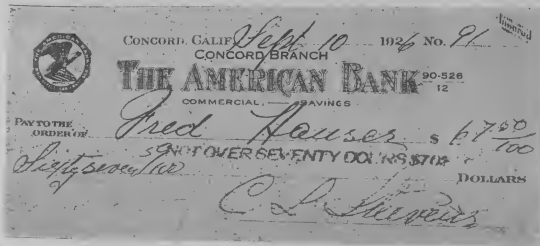 CONCORD, CALIF. Sept. 10 1926 No. 91
CONCORD BRANCH
THE AMERICAN BANK 90-526
12
COMMERCIAL, SAVINGS
PAY TO THE
ORDER OF Fred Hauser $ 67.50/100
NOT OVER SEVENTY DOLLARS $70$
Sixty seven DOLLARS
C. L.